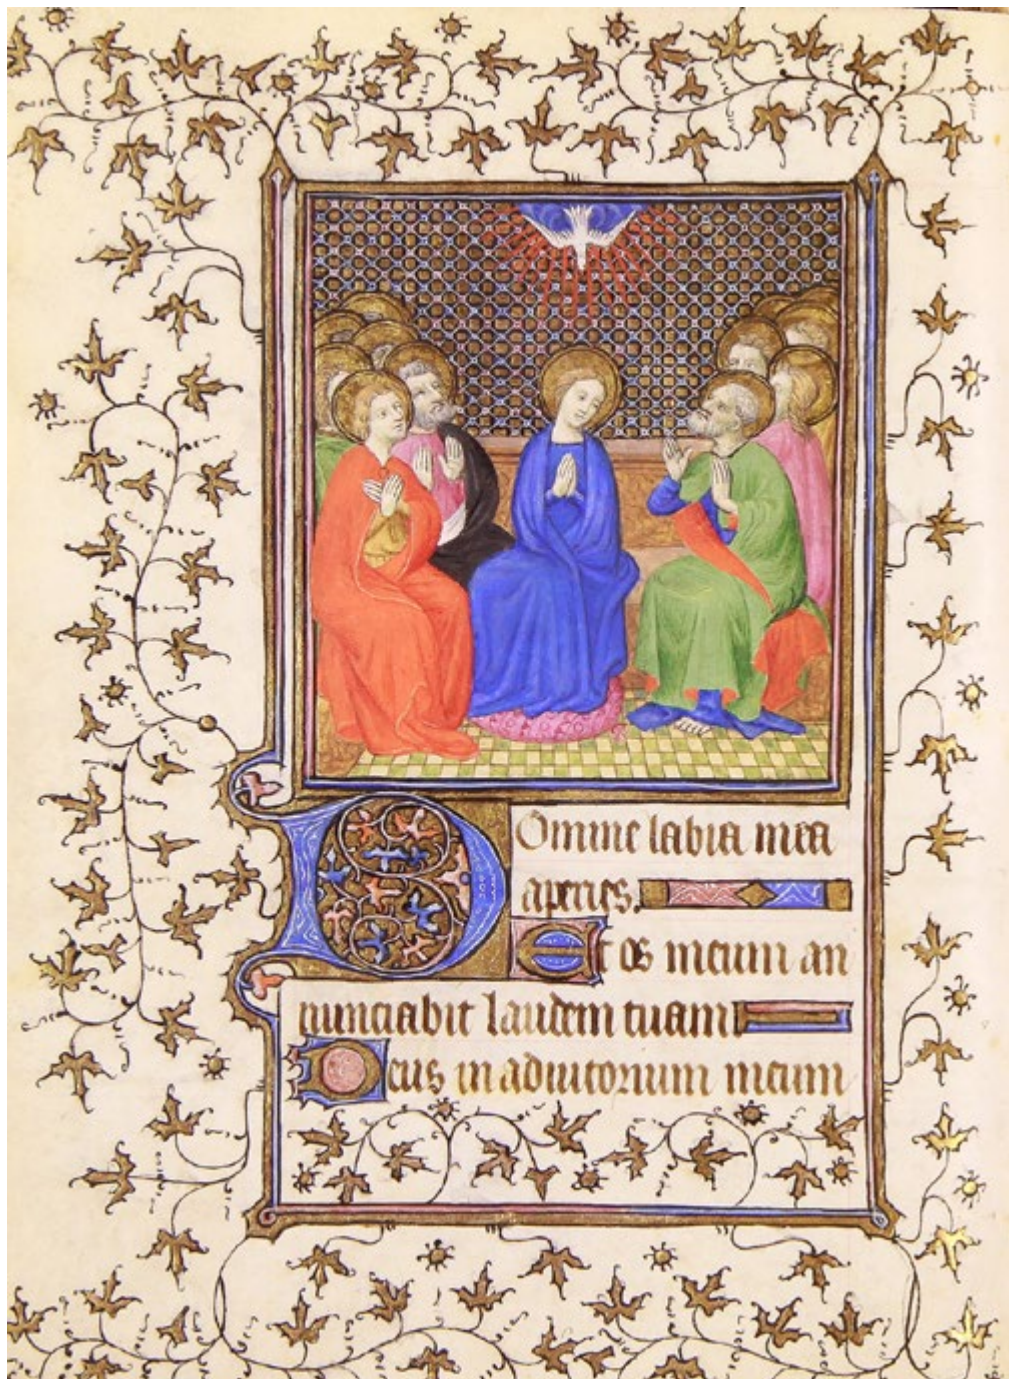 Domine labia mea
aperies.
Et os meum an
nunciabit laudem tuam
Deus in adiutorium meum